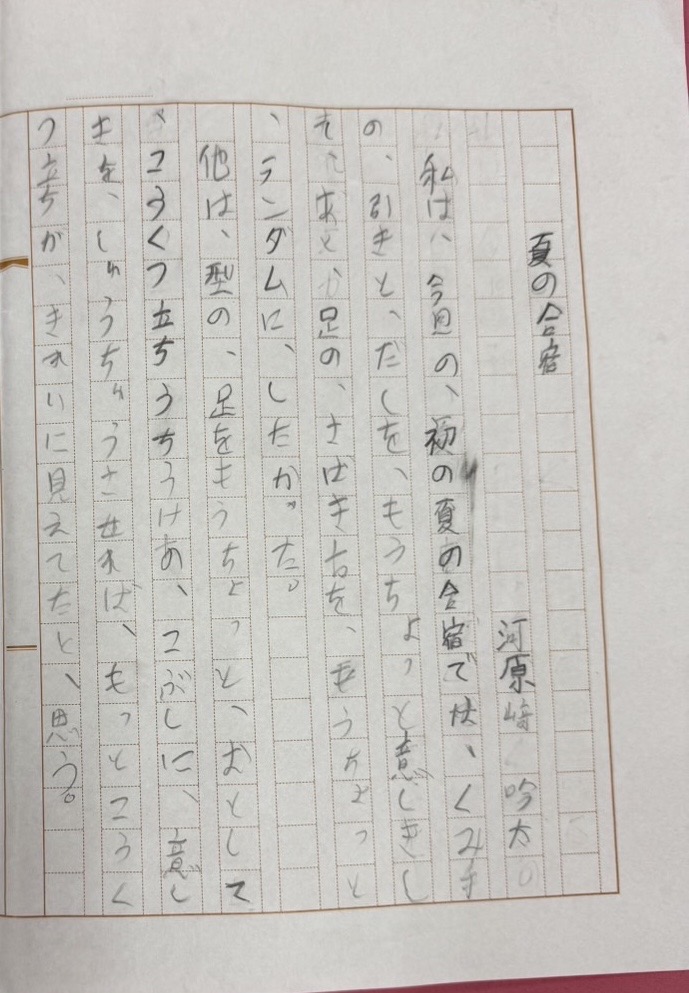 夏の合宿
河原﨑 吟太
私は、今思の、初の夏の合宿では、くみ手
の、引きと、だしを、もうちょっと意しきし
て、あと、足の、さばき方を、もうちょっと
、ランダムに、したかった。
他は、型の、足をもうちょっと、おとして
、こうくつ立ちうちうけあ、こぶしに、意し
きを、し"うち"うさせれば、もっとこうく
つ立ちが、きれいに見えてたと、思う。